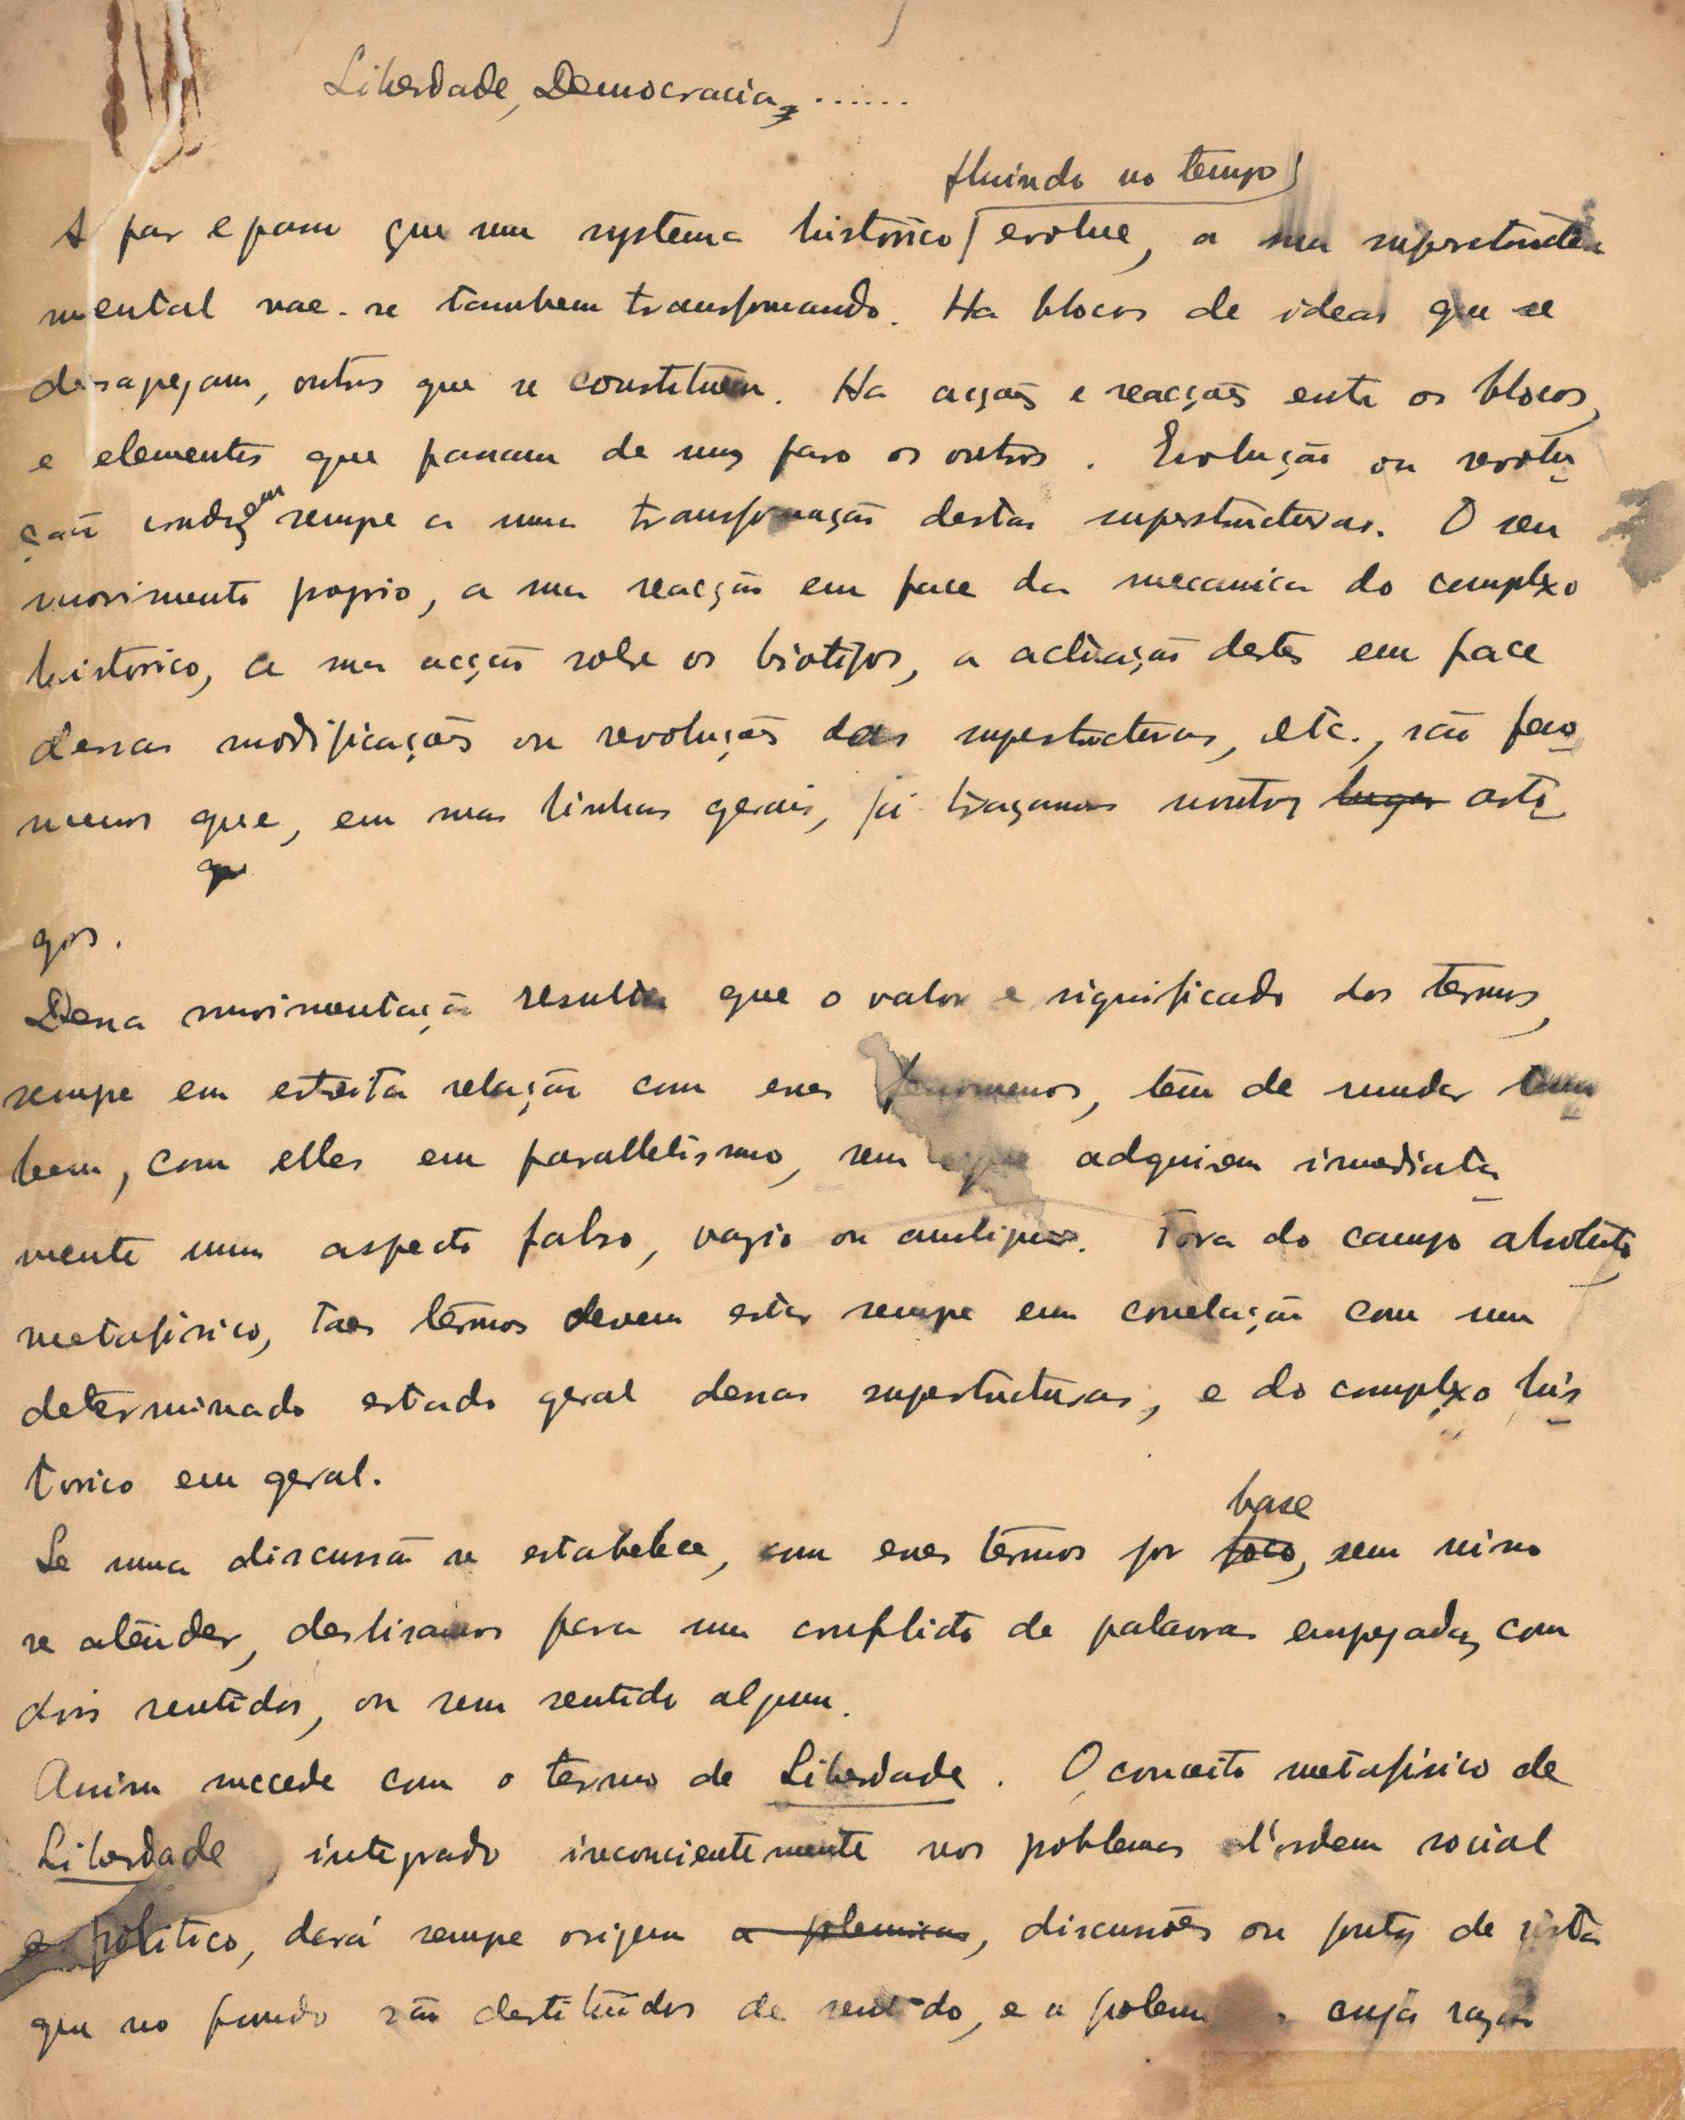 Liberdade, Democracia, ......
fluindo no tempo
A par e passo que um systema historico evolue, a sua superstructura
mental vae-se tambem transformando. Ha blocos de ideas que se
desapegam, outros que se constituem. Ha acções e reacções entre os blocos,
e elementos que passam de uns para os outros. Evolução ou revolu-
ção conduzem sempre a uma transformação destas superstructuras. O seu
movimento proprio, a sua reacção em face da mecanica do complexo
historico, a sua acção sobre os biotipos, a actuação destes em face
dessas modificações ou revoluções das superstructuras, etc., são feno-
menos que, em suas linhas gerais, já traçamos noutros lugar arti-
gos.
Dessa movimentação resulta que o valor e significado dos termos,
sempre em estreita relação com esses fenomenos, têm de mudar tam-
bem, com elles em parallelismo, sem que adquirem imediata-
mente um aspecto falso, vazio ou ambiguo. Fora do campo absoluto,
metafisico, taes têrmos devem estar sempre em correlação com um
determinado estado geral dessas superstructuras, e do complexo his-
torico em geral.
base
Se uma discussão se estabelece, com esses têrmos por foco, sem nisso
se atender, deslisamos para um conflicto de palavras empregadas com
dois sentidos, ou sem sentido algum.
Assim succede com o termo de Liberdade. O conceito metafisico de
Liberdade integrado inconcientemente nos problemas d'ordem social
e politico, dará sempre origem a polemicas, discussões ou pontos de vista
que no fundo são destituidos de sentido, e a cuja razão